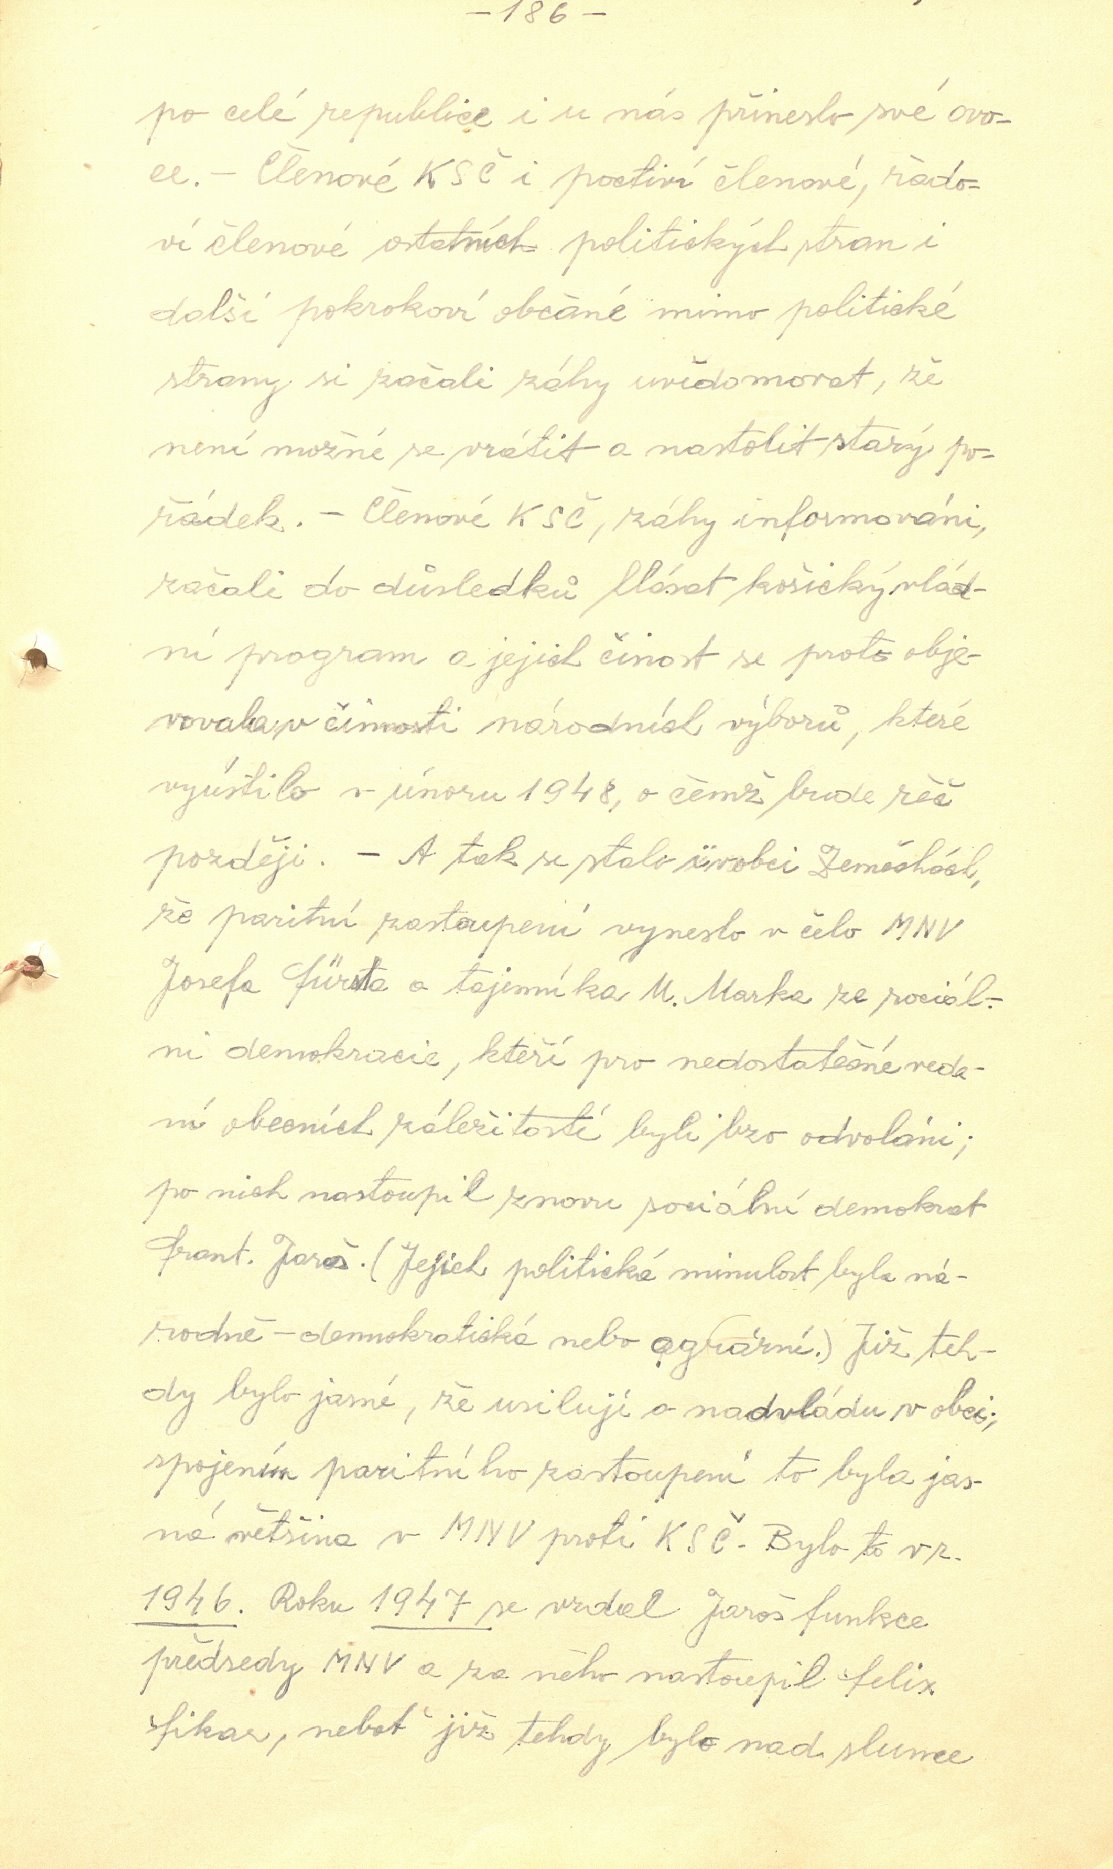 – 186 –
po celé republice i u nás přineslo své ovo-
ce. – Členové KSČ i poctiví členové, řado-
ví členové ostatních politických stran i
další pokrokoví občané mimo politické
strany si začali záhy uvědomovat, že
není možné se vrátit a nastolit starý po-
řádek. – Členové KSČ, záhy informováni,
začali do důsledků hlásat košický vlád-
ní program a jejich činost se proto obje-
vovala v činnosti národních výborů, které
vyústilo v únoru 1948, o čemž bude řeč
později. – A tak se stalo i v obci Zeměchách,
že paritní zastoupení vyneslo v čelo MNV
Josefa Fürsta a tajemníka M. Marka ze sociál-
ní demokracie, kteří pro nedostatečné vede-
ní obecních záležitostí byli brzo odvoláni;
po nich nastoupil znovu sociální demokrat
Frant. Jaroš. (Jejich politická minulost byla ná-
rodně – demokratická nebo agrární.) Již teh-
dy bylo jasné, že usilují o nadvládu v obci;
spojením paritního zastoupení to byla jas-
ná většina v MNV proti KSČ. Bylo to v r.
1946. Roku 1947 se vzdal Jaroš funkce
předsedy MNV a za něho nastoupil Felix
Fikar, neboť již tehdy bylo nad slunce